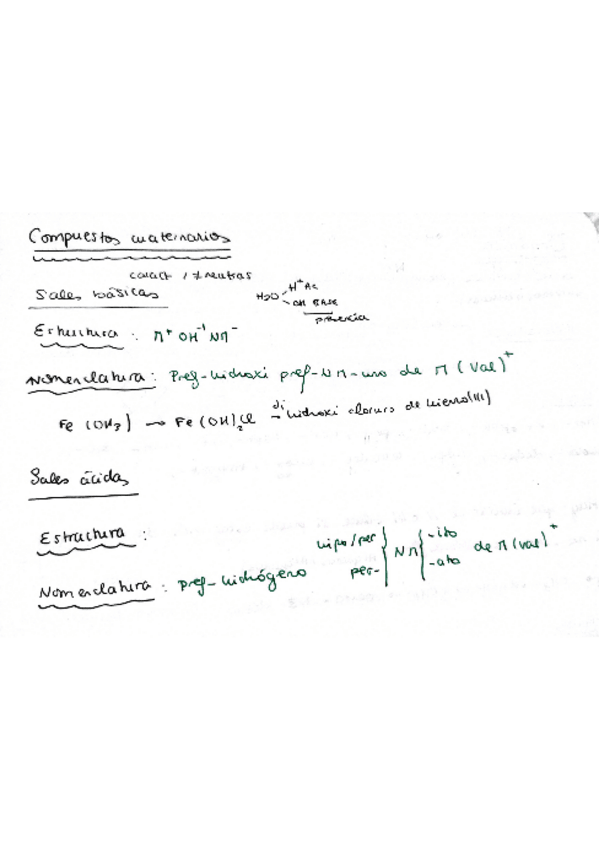 Compuestos cuaternarios
caract / ≠ neutras
Sales básicas
H2O H+ Ac
OH BASE
presencia
Estructura : M+ OH-1 NM-
Nomenclatura : Pref-hidroxi pref-NM-uro de M (val)+
Fe (OH3) → Fe(OH)2Cl → di hidroxi cloruro de hierro(III)
Sales ácidas
Estructura :
hipo/per -ito
Nomenclatura : pref-hidrógeno NM de M(val)+
per- -ato